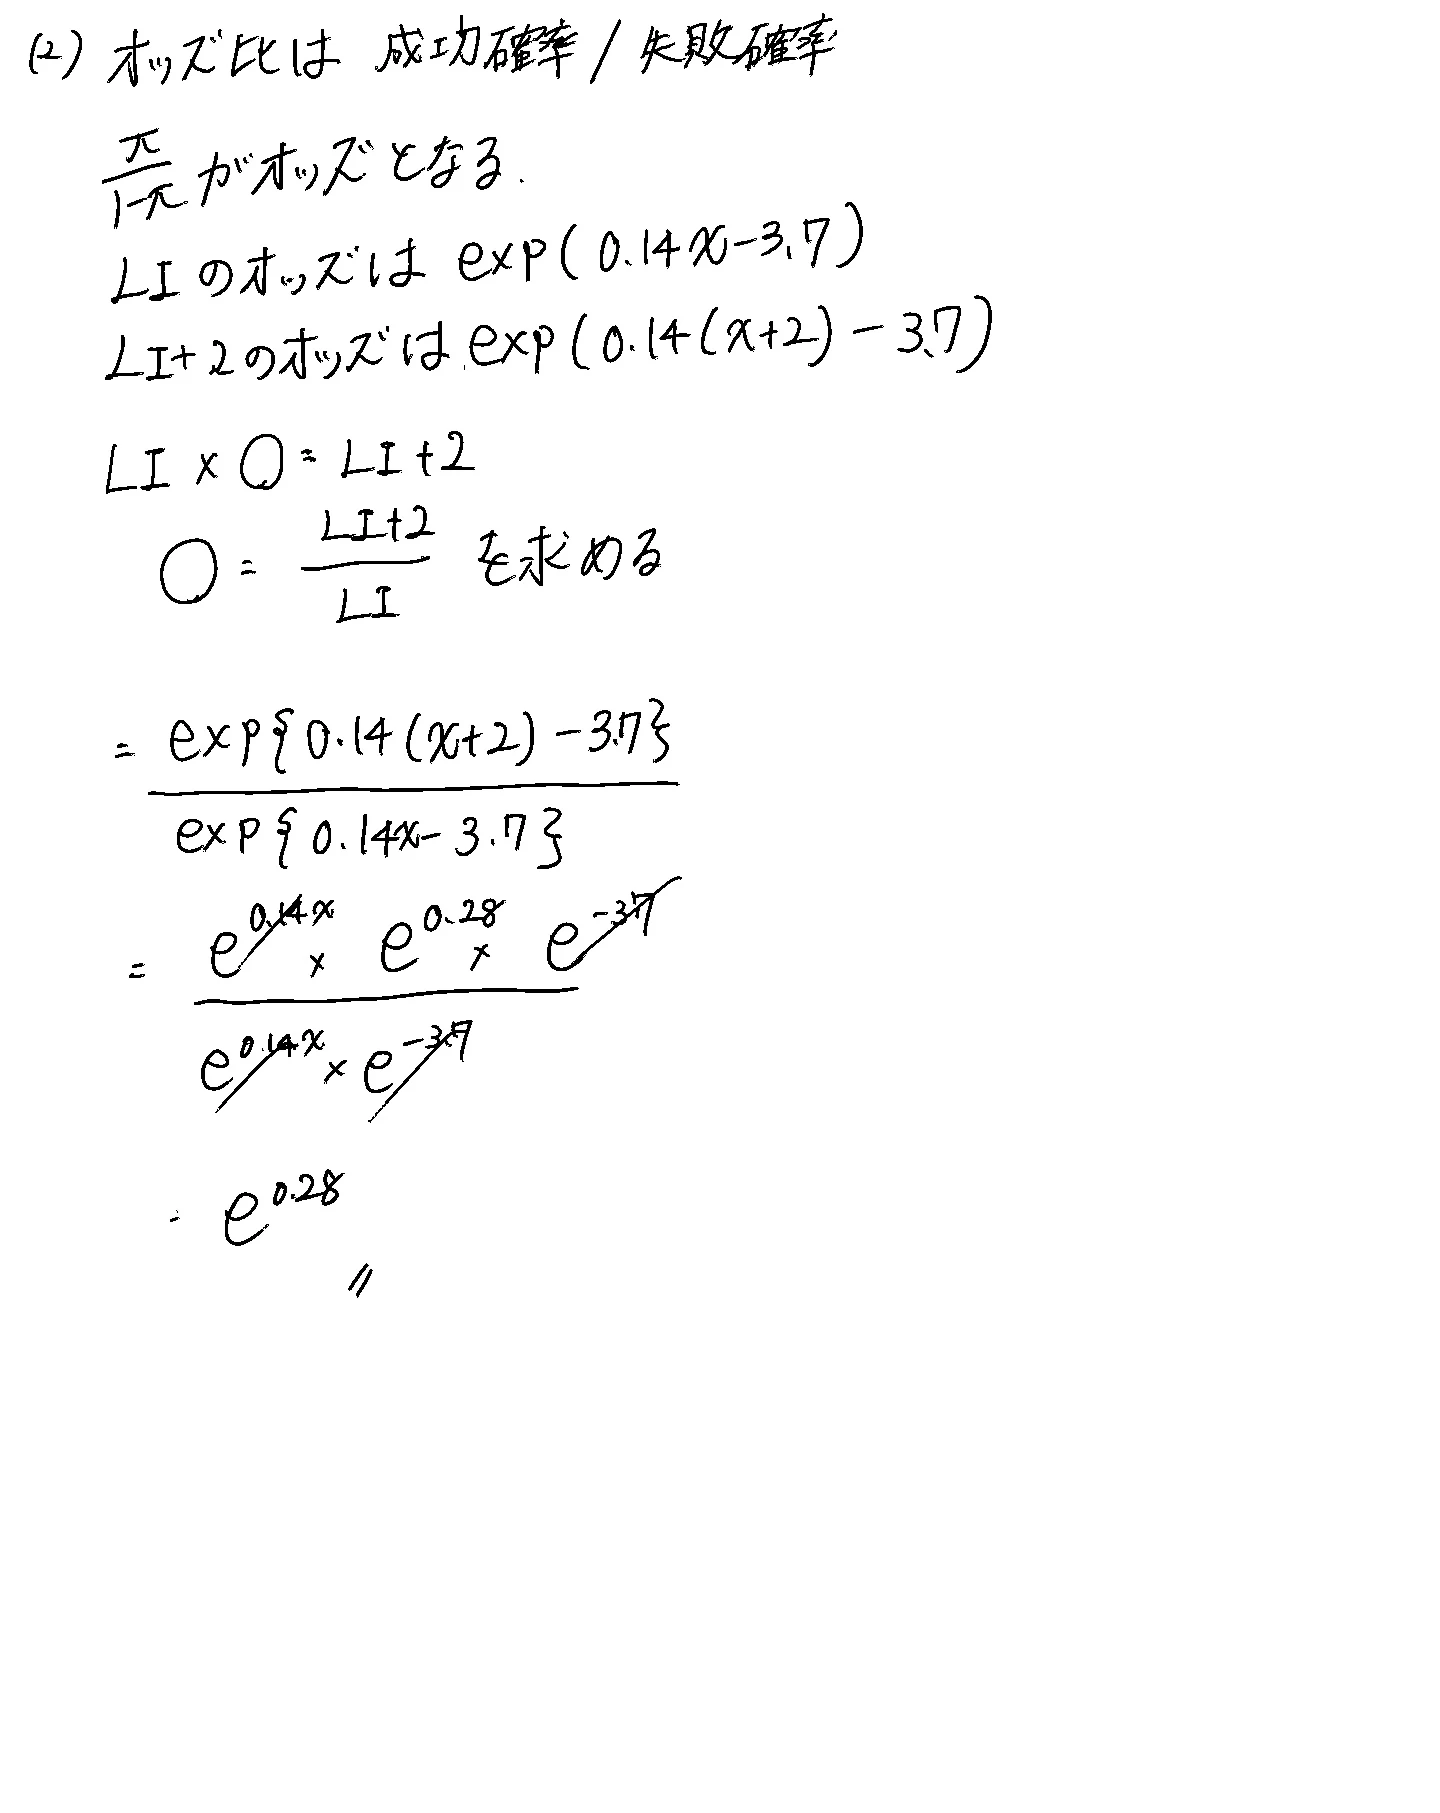 (2) オッズ比は 成功確率 / 失敗確率
π/(1-π) がオッズとなる.
LIのオッズは exp(0.14x-3.7)
LI+2のオッズは exp(0.14(x+2)-3.7)
LI × ○ = LI+2
○ = (LI+2)/LI を求める
= exp{0.14(x+2)-3.7}
exp{0.14x-3.7}
= e^0.14x × e^0.28 × e^-3.7
e^0.14x × e^-3.7
= e^0.28
〃